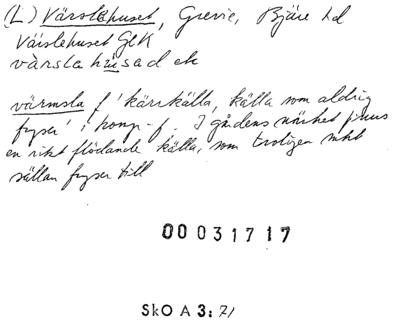 (L) Värslahuset, Grevie, Bjäre hd
Värslehuset GEK
värsla hùsad ek
värmsla f 'kärrkälla, källa som aldrig
fryser' i komp-f. I gårdens närhet finns
en rikt flödande källa, som troligen mkt
sällan fryser till
00031717
SkO A 3: 71